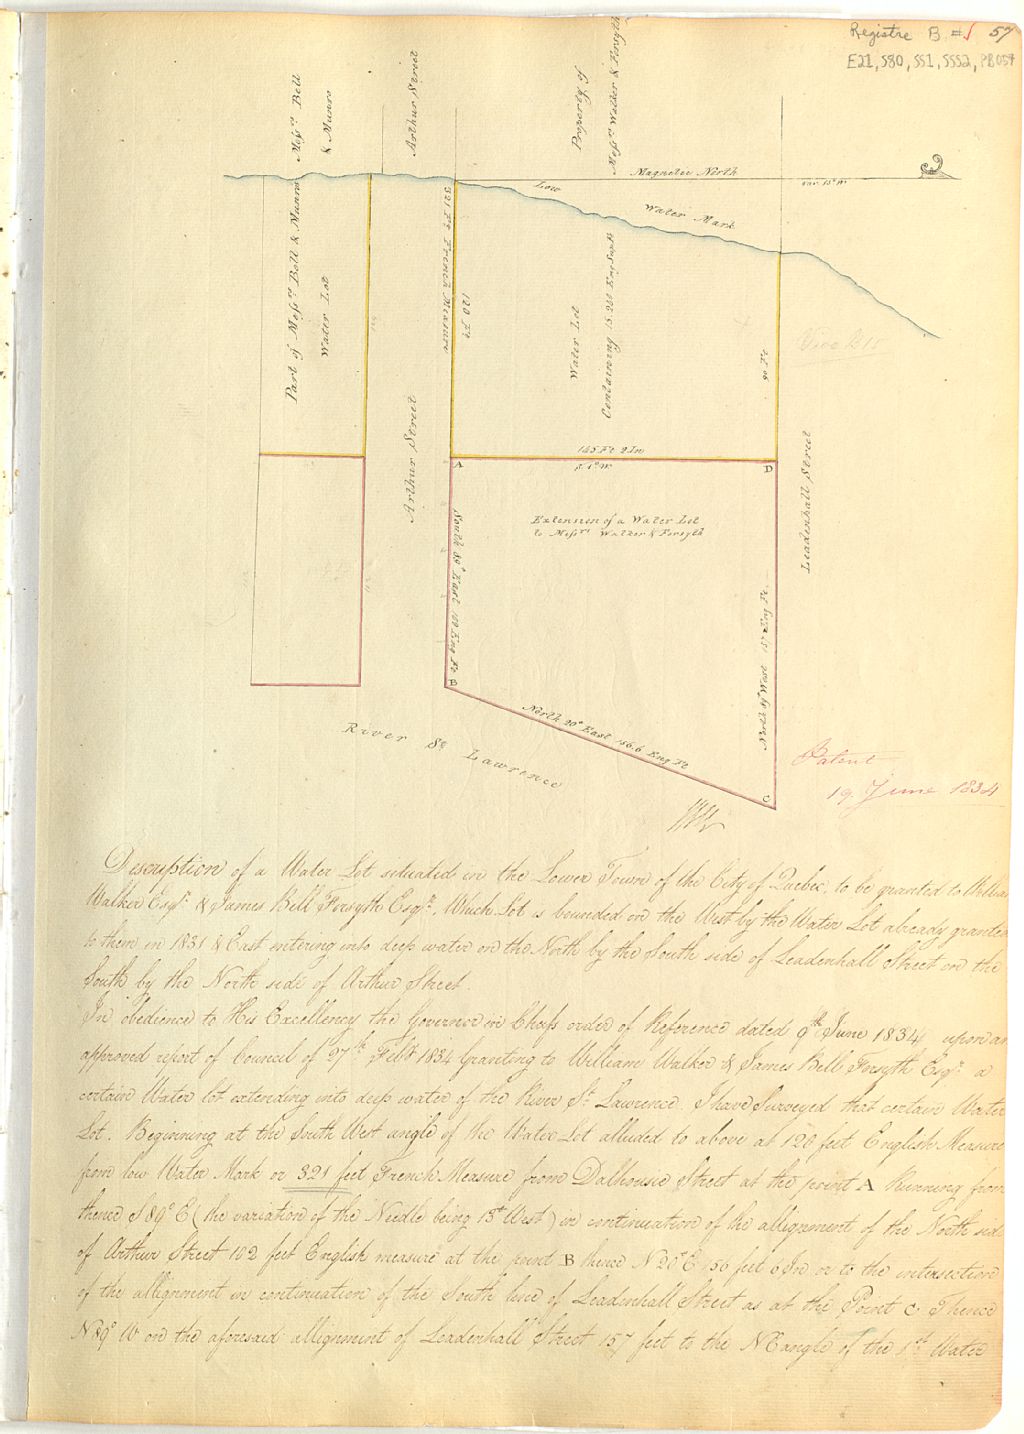 Registre B # 57
E21, S80, SS1, SSS2, PB057
Messrs Bell
& Munro
Arthur Street
Property of
Messrs Walker & Forsyth
Magnetic North
var 13° W
Low
Water Mark
Part of Messrs Bell & Munro
Water Lot
321 Ft French Measure
120 Ft
Water Lot
Containing 15.268 Eng Sup Ft
90 Ft
Vide B 18
145 Ft 2 In
S. 1° W
A
D
Arthur Street
Leadenhall Street
Extension of a Water Lot
to Messrs Walker & Forsyth
South 89° East 102 Eng Ft
North 89° West 157 Eng Ft.
B
North 20° East 156.6 Eng Ft
C
River St Lawrence
Patent
19 June 1834
Description of a Water Lot situated in the Lower Town of the City of Quebec, to be granted to William
Walker Esqr. & James Bell Forsyth Esqr. Which Lot is bounded on the West by the Water Lot already granted
to them in 1831 & East entering into deep water on the North by the South side of Leadenhall Street on the
South by the North side of Arthur Street.
In obedience to His Excellency the Governor in Chiefs order of Reference dated 9th June 1834 upon an
approved report of Council of 27th Feby 1834 Granting to William Walker & James Bell Forsyth Esqr. a
certain Water lot extending into deep water of the River St. Lawrence. I have Surveyed that certain Water
Lot. Beginning at the South West angle of the Water Lot alluded to above at 120 feet English Measure
from low Water Mark or 321 feet French Measure from Dalhousie Street at the point A Running from
thence S 89° E (the variation of the Needle being 13° West) in continuation of the allignment of the North side
of Arthur Street 102 feet English measure at the point B thence N 20° E 156 feet 6 In or to the intersection
of the allignment in continuation of the South line of Leadenhall Street as at the Point C. Thence
N 89° W on the aforesaid allignment of Leadenhall Street 157 feet to the NE angle of the 1st Water